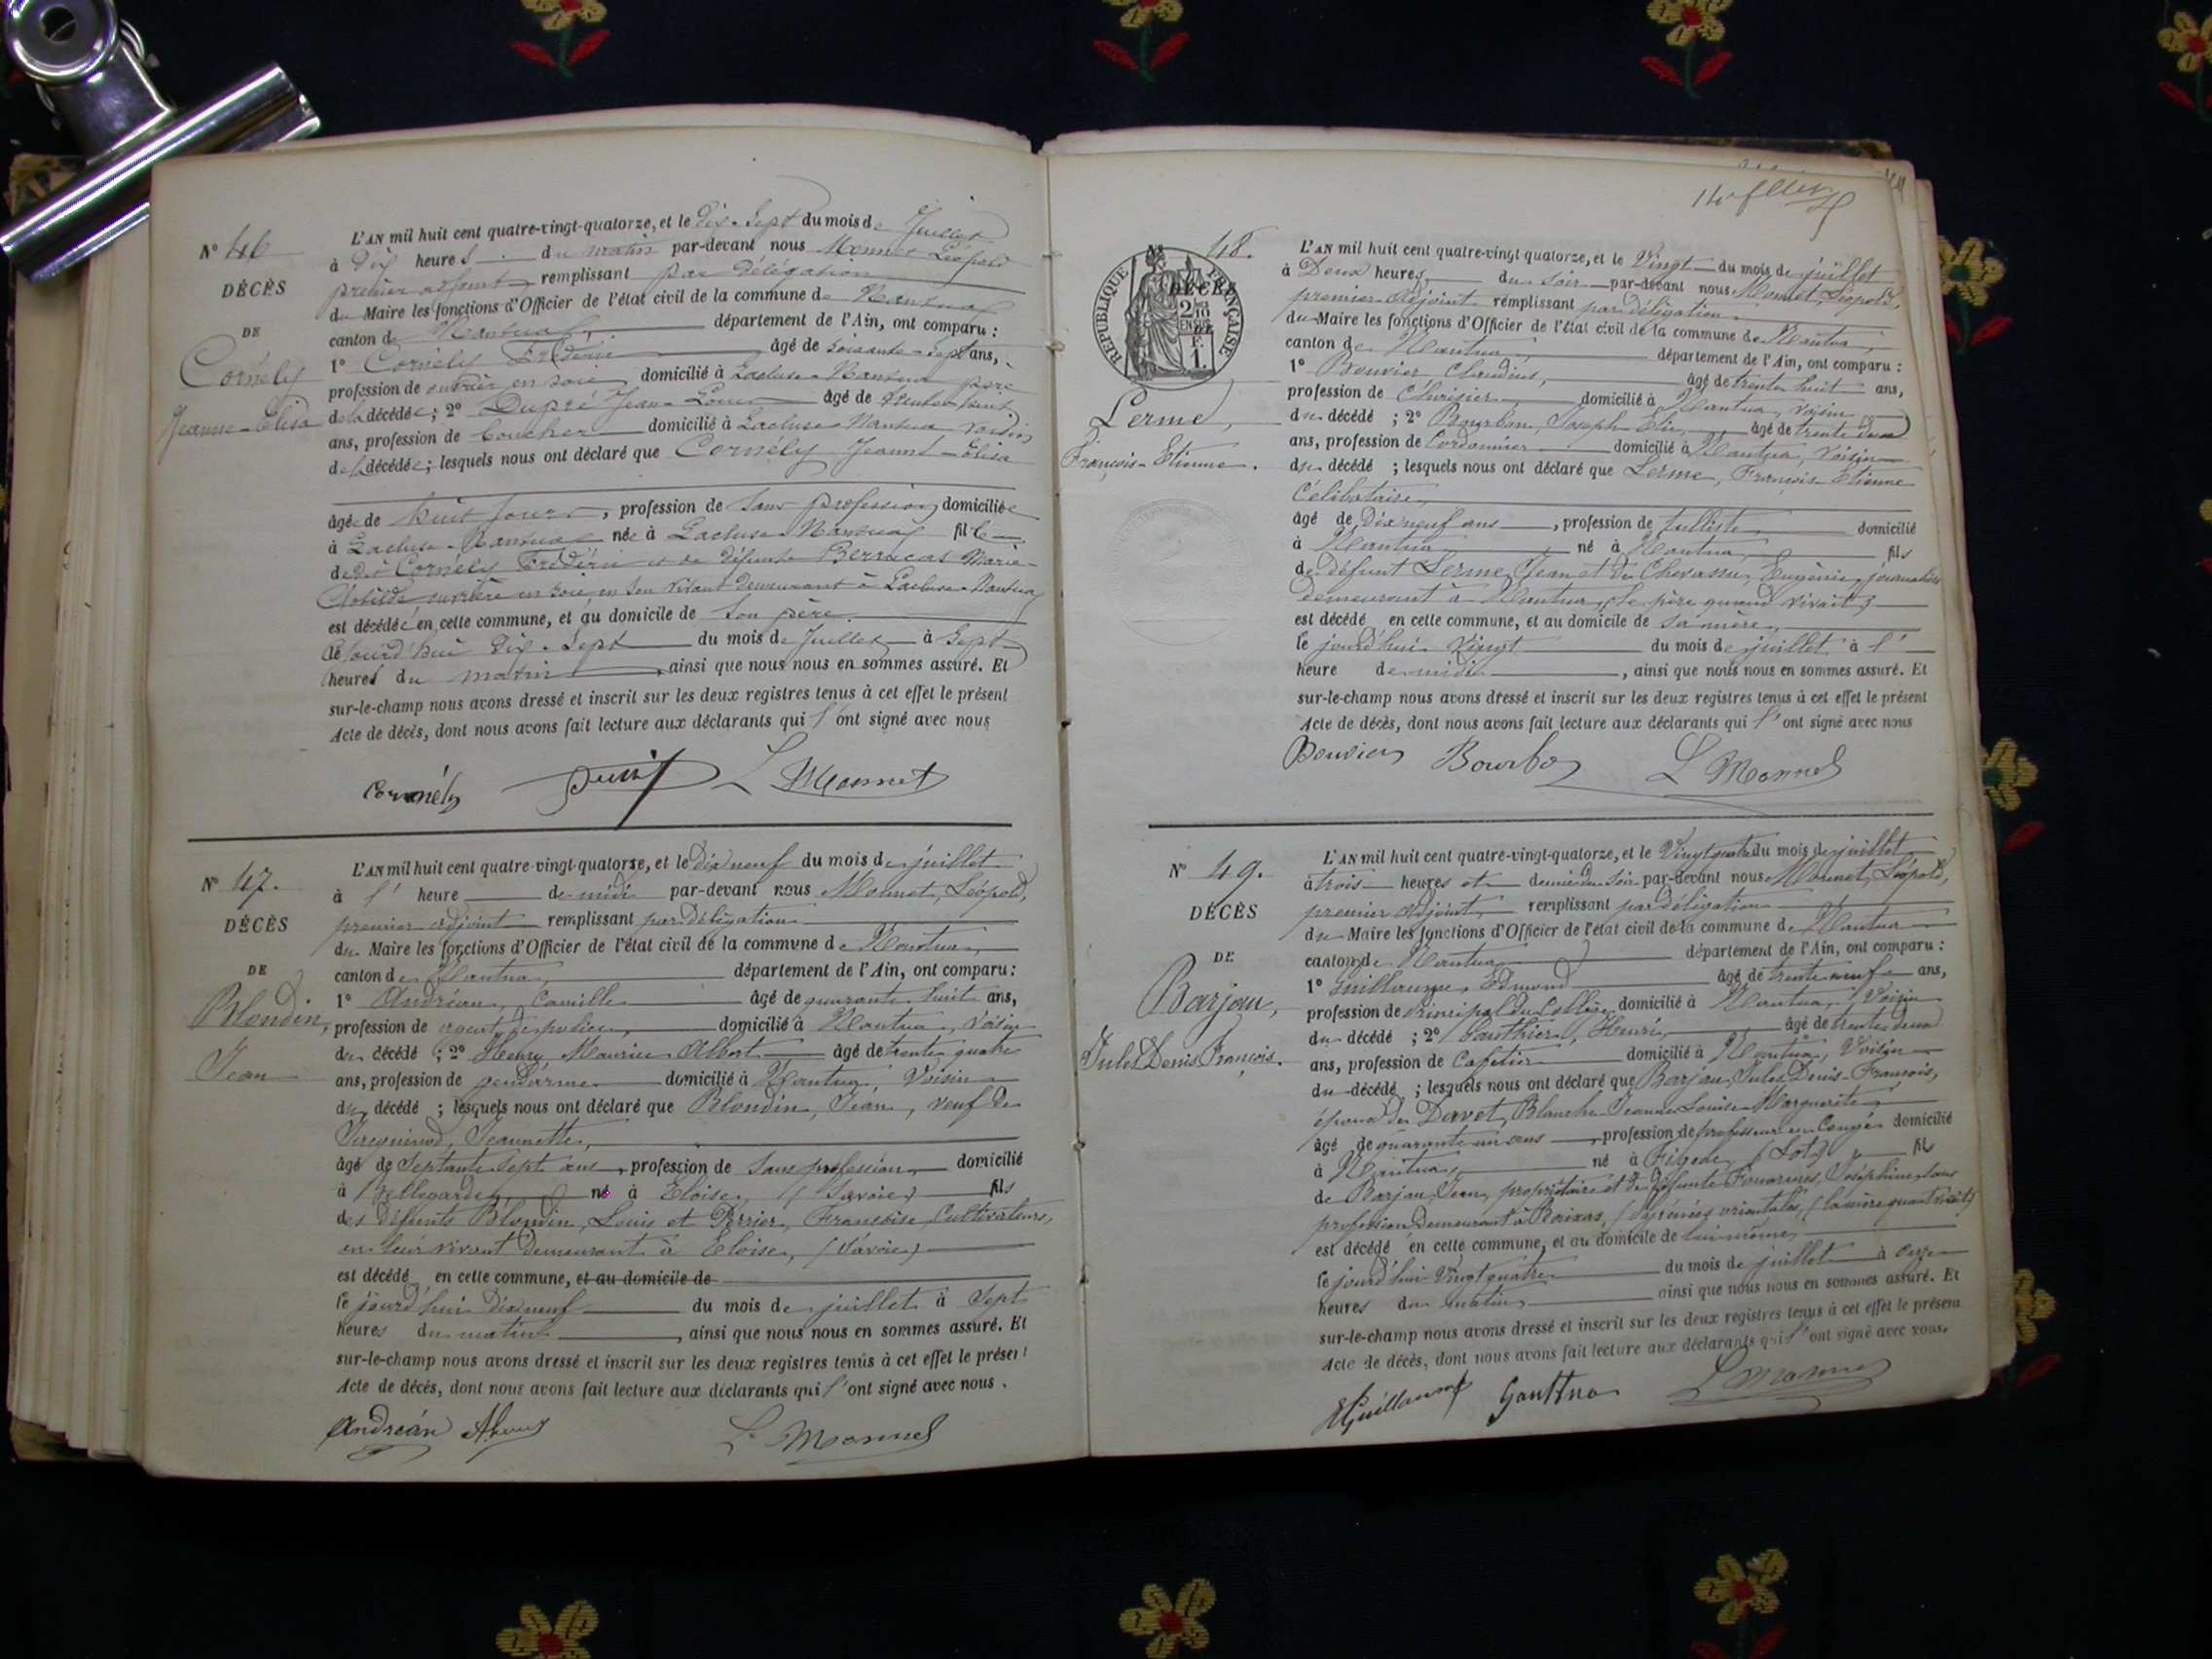 N° 46
DÉCÈS
DE
Cornély
Jeanne-Elisa
L'AN mil huit cent quatre-vingt-quatorze, et le dix-sept du mois de Juillet
à dix heures du matin par-devant nous Monnet Léopold
premier adjoint remplissant par délégation
du Maire les fonctions d'Officier de l'état civil de la commune de Nantua
canton de Nantua, département de l'Ain, ont comparu :
1° Cornély Frédéric âgé de soixante-sept ans,
profession de ouvrier en soie domicilié à Lacluse-Nantua père
de la décédée ; 2° Dupré Jean-Louis âgé de trente-huit
ans, profession de boucher domicilié à Lacluse-Nantua voisin
de la décédée ; lesquels nous ont déclaré que Cornély Jeanne-Elisa
âgée de huit jours, profession de sans profession domiciliée
à Lacluse-Nantua née à Lacluse-Nantua fille
de Cornély Frédéric et de défunte Berracas Marie-
Clotilde ouvrière en soie, en son vivant demeurant à Lacluse-Nantua
est décédée en cette commune, et au domicile de son père
le jourd'hui dix-sept du mois de Juillet à sept
heures du matin, ainsi que nous nous en sommes assuré. Et
sur-le-champ nous avons dressé et inscrit sur les deux registres tenus à cet effet le présent
Acte de décès, dont nous avons fait lecture aux déclarants qui l'ont signé avec nous
Cornély L Monnet
N° 47.
DÉCÈS
DE
Blondin,
Jean
L'AN mil huit cent quatre-vingt-quatorze, et le dix neuf du mois de juillet
à l' heure de midi par-devant nous Monnet, Léopold,
premier adjoint remplissant par délégation
du Maire les fonctions d'Officier de l'état civil de la commune de Nantua,
canton de Nantua, département de l'Ain, ont comparu :
1° Andréan, Camille âgé de quarante huit ans,
profession de agent de police, domicilié à Nantua, voisin
du décédé ; 2° Henry Maurice Albert âgé de trente quatre
ans, profession de gendarme domicilié à Nantua, Voisin
du décédé ; lesquels nous ont déclaré que Blondin, Jean, veuf de
Jeannette,
âgé de septante sept ans, profession de sans profession, domicilié
à Bellegarde, né à Eloise, (Savoie) fils
des défunts Blondin, Louis et Perrier, Françoise, Cultivateurs,
en leur vivant demeurant à Eloise, (Savoie)
est décédé en cette commune, et au domicile de
le jourd'hui dix neuf du mois de juillet à sept
heures du matin, ainsi que nous nous en sommes assuré. Et
sur-le-champ nous avons dressé et inscrit sur les deux registres tenus à cet effet le présent
Acte de décès, dont nous avons fait lecture aux déclarants qui l'ont signé avec nous.
Andréan L. Monnet
N° 48.
RÉPUBLIQUE FRANÇAISE
DÉCÈS
2/10
EN SUS
1.
Lerme,
François-Etienne.
L'AN mil huit cent quatre-vingt-quatorze, et le Vingt du mois de juillet
à Deux heures du soir par-devant nous Monnet, Léopold,
premier Adjoint remplissant par délégation
du Maire les fonctions d'Officier de l'état civil de la commune de Nantua,
canton de Nantua, département de l'Ain, ont comparu :
1° Bouvier Claudius, âgé de trente huit ans,
profession de domicilié à Nantua, voisin
du décédé ; 2° Bourbon, Joseph Elie, âgé de trente deux
ans, profession de Cordonnier domicilié à Nantua, voisin
du décédé ; lesquels nous ont déclaré que Lerme, François Etienne
Célibataire,
âgé de Dix neuf ans, profession de tulliste domicilié
à Nantua né à Nantua, fils
de défunt Lerme, Jean et de Chevassu, Eugénie, journaliers
demeurant à Nantua, (le père quand vivait)
est décédé en cette commune, et au domicile de sa mère,
le jourd'hui vingt du mois de juillet à l'
heure de midi, ainsi que nous nous en sommes assuré. Et
sur-le-champ nous avons dressé et inscrit sur les deux registres tenus à cet effet le présent
Acte de décès, dont nous avons fait lecture aux déclarants qui l'ont signé avec nous
Bouvier Bourbon L Monnet
N° 49.
DÉCÈS
DE
Barjau,
Jules Denis François.
L'AN mil huit cent quatre-vingt-quatorze, et le Vingt quatre du mois de juillet
à trois heures et demie du soir par-devant nous Monnet, Léopold,
premier adjoint, remplissant par délégation
du Maire les fonctions d'Officier de l'état civil de la commune de Nantua
canton de Nantua département de l'Ain, ont comparu :
1° Guillaume, Edmond âgé de trente neuf ans,
profession de Principal du Collège, domicilié à Nantua, Voisin
du décédé ; 2° Gauthier, Henri, âgé de trente deux
ans, profession de Cafetier domicilié à Nantua, Voisin
du décédé ; lesquels nous ont déclaré que Barjau, Jules, Denis-François,
époux de Davet, Blanche Jeanne Louise Marguerite,
âgé de quarante un ans, profession de professeur en Congé domicilié
à Nantua, né à Figeac (Lot) fils
de Barjau, Jean, propriétaire et de défunte Joséphine, sans
profession demeurant à Baixas, (Pyrénées orientales, (la mère quand vivait)
est décédé en cette commune, et au domicile de lui-même,
le jourd'hui Vingt quatre du mois de juillet à onze
heures du matin, ainsi que nous nous en sommes assuré. Et
sur-le-champ nous avons dressé et inscrit sur les deux registres tenus à cet effet le présent
Acte de décès, dont nous avons fait lecture aux déclarants qui l'ont signé avec nous.
EGuillaume L Monnet